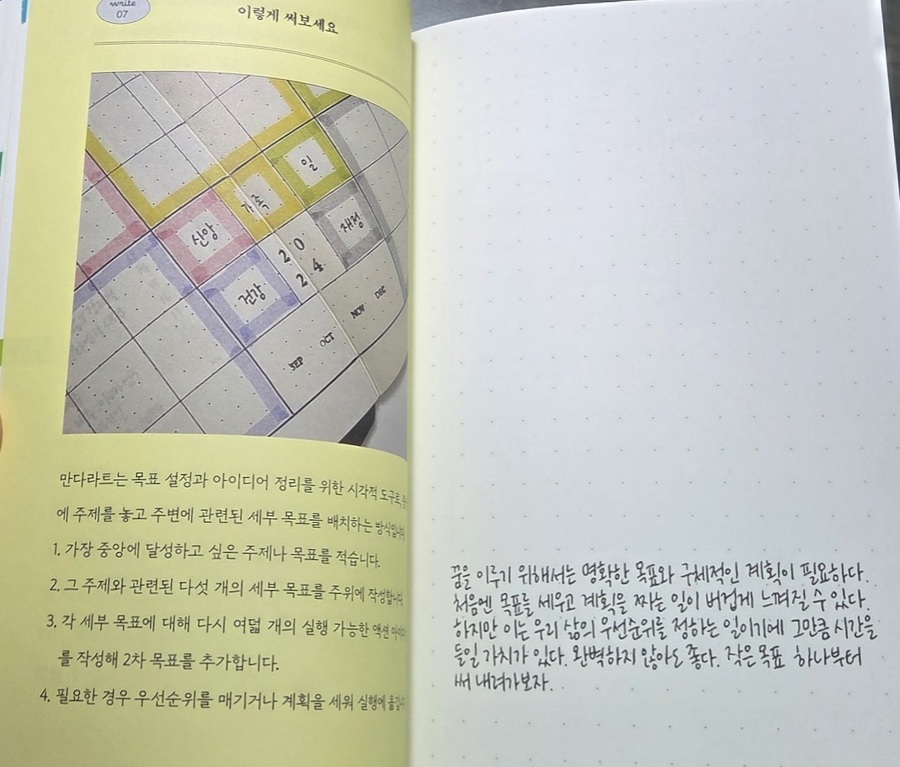 write
07
이렇게 써보세요
일
가족
신앙
재정
건강
20
24
SEP OCT NOV DEC
만다라트는 목표 설정과 아이디어 정리를 위한 시각적 도구로
에 주제를 놓고 주변에 관련된 세부 목표를 배치하는 방식입니다.
1. 가장 중앙에 달성하고 싶은 주제나 목표를 적습니다.
2. 그 주제와 관련된 다섯 개의 세부 목표를 주위에 작성합니다.
3. 각 세부 목표에 대해 다시 여덟 개의 실행 가능한 액션
를 작성해 2차 목표를 추가합니다.
4. 필요한 경우 우선순위를 매기거나 계획을 세워 실행에
꿈을 이루기 위해서는 명확한 목표와 구체적인 계획이 필요하다.
처음엔 목표를 세우고 계획을 짜는 일이 버겁게 느껴질 수 있다.
하지만 이는 우리 삶의 우선순위를 정하는 일이기에 그만큼 시간을
들일 가치가 있다. 완벽하지 않아도 좋다. 작은 목표 하나부터
써 내려가보자.